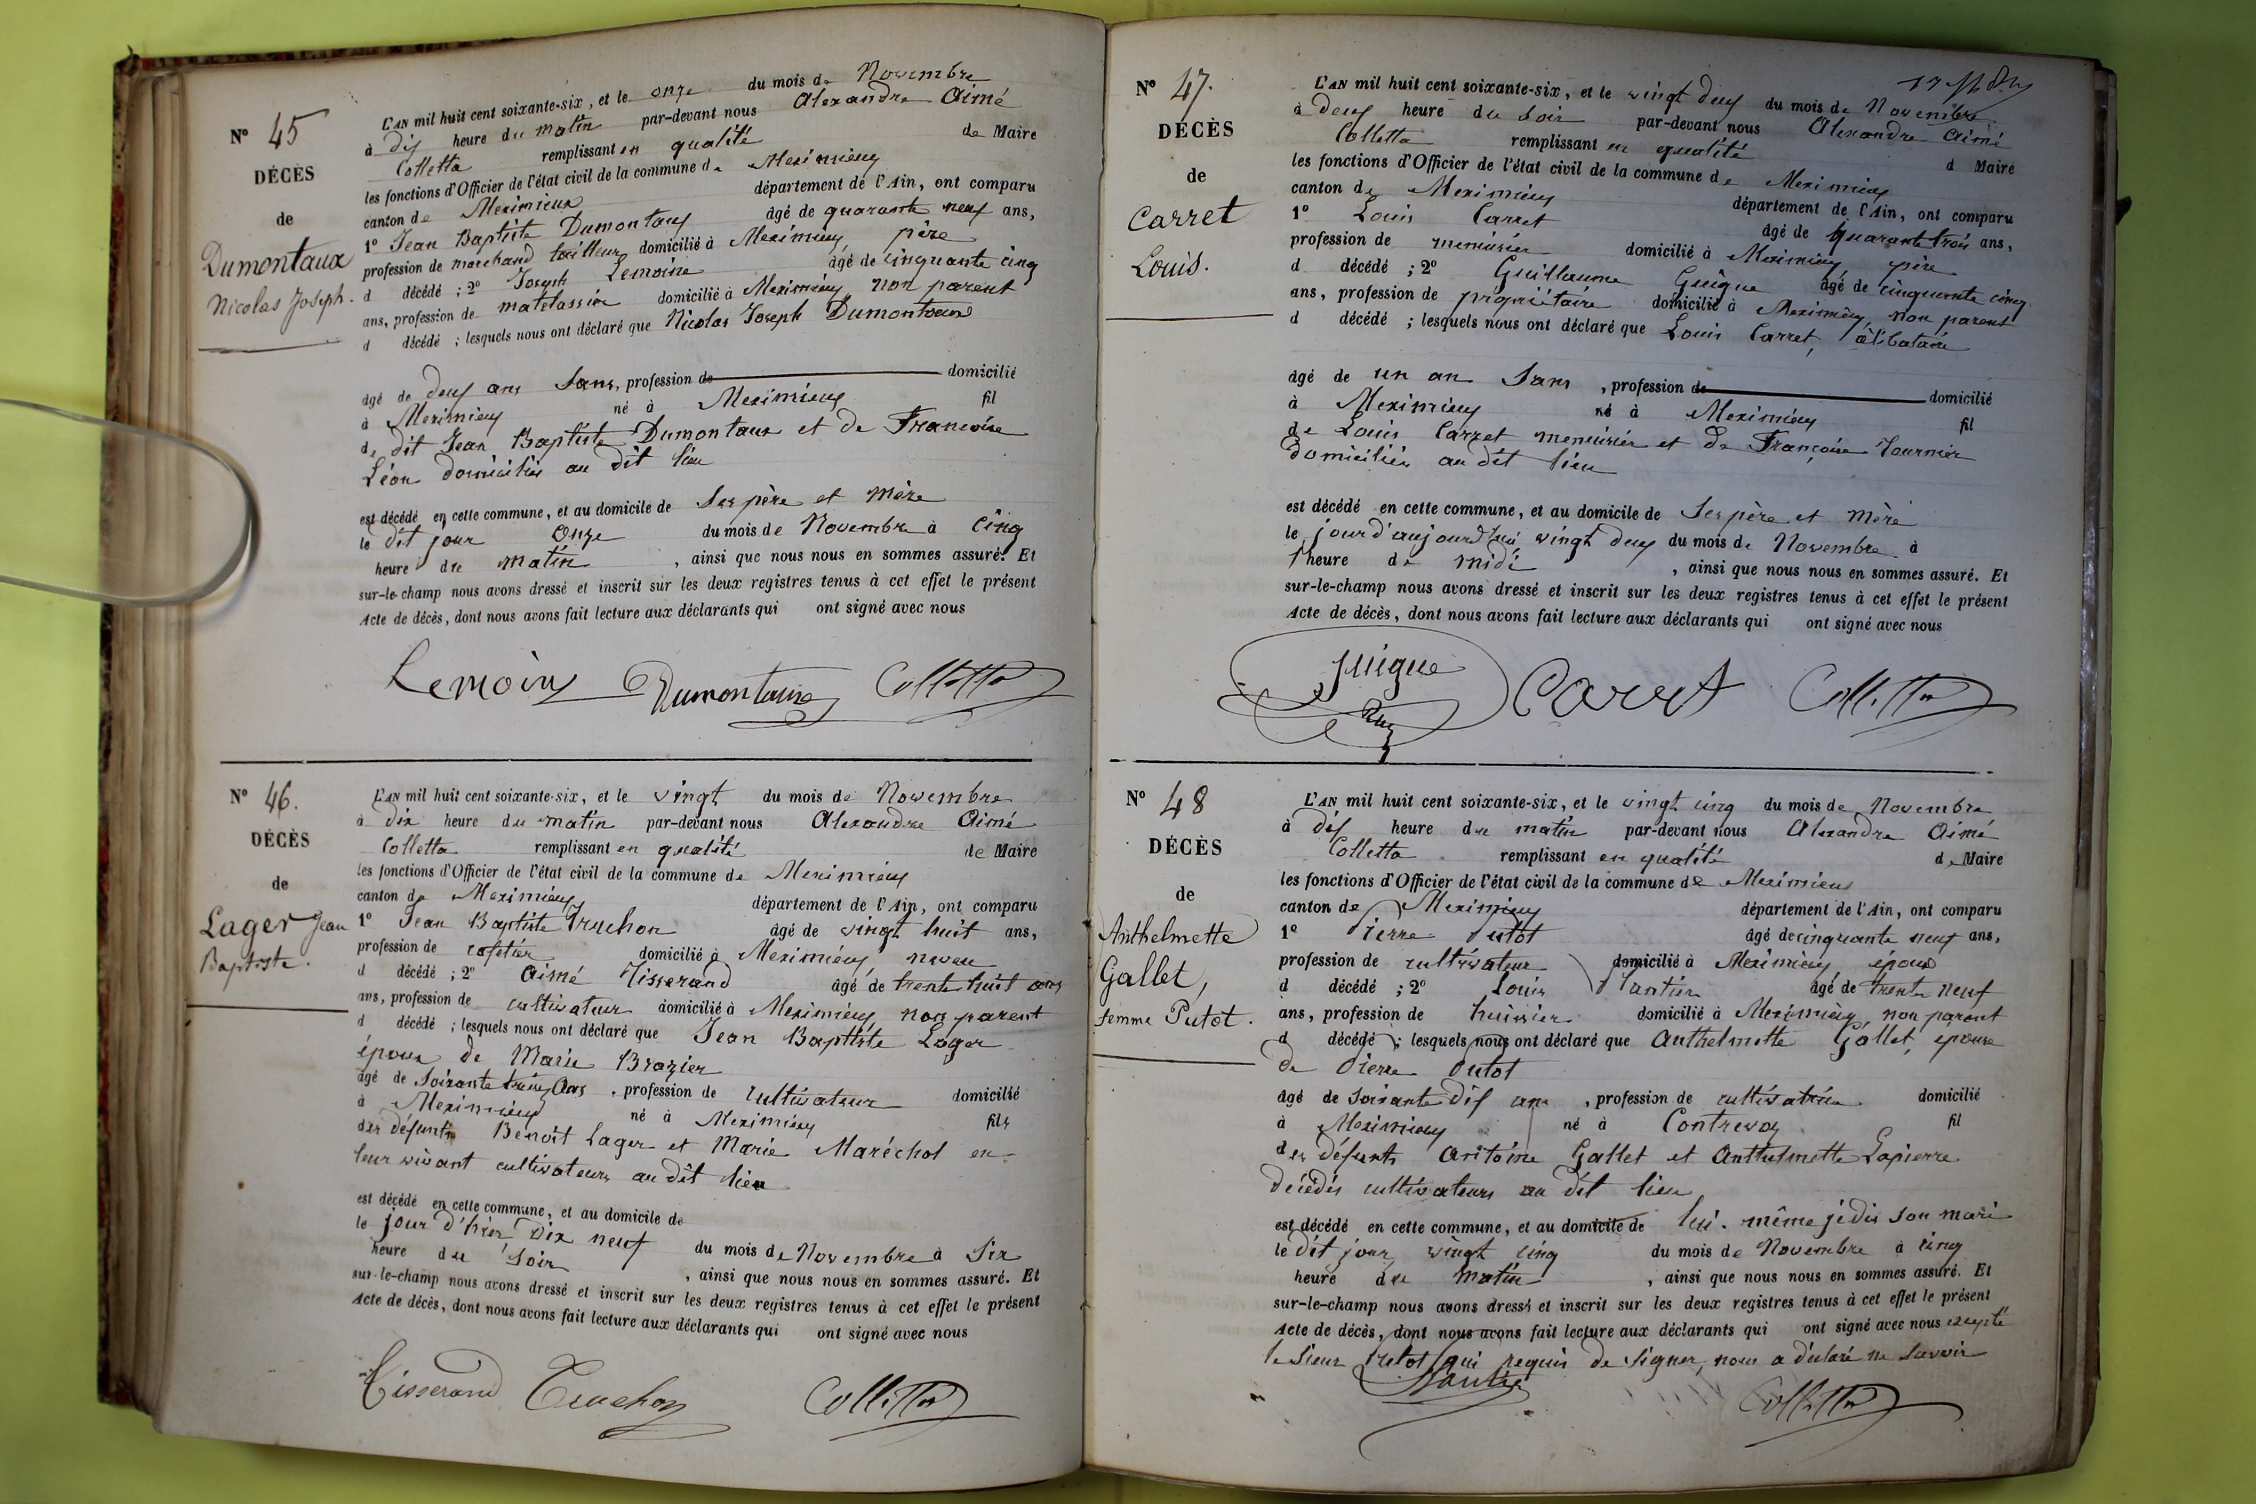 N° 45
DÉCÈS
de
Dumontaux
Nicolas Joseph.
L'AN mil huit cent soixante-six, et le onze du mois de Novembre
à dix heure du matin par-devant nous Alexandre Aimé
Colletta remplissant en qualité de Maire
les fonctions d'Officier de l'état civil de la commune de Meximieux
canton de Meximieux département de l'Ain, ont comparu
1° Jean Baptiste Dumontaux âgé de quarante neuf ans,
profession de marchand tailleur domicilié à Meximieux père
d décédé ; 2° Joseph Lemoine âgé de cinquante cinq
ans, profession de matelassier domicilié à Meximieux non parent
d décédé ; lesquels nous ont déclaré que Nicolas Joseph Dumontaux
âgé de deux ans Sans, profession de domicilié
à Meximieux né à Meximieux fil
de dit Jean Baptiste Dumontaux et de Francoise
Léon domiciliés au dit lieu
est décédé en cette commune, et au domicile de Ses père et mère
le dit jour onze du mois de Novembre à cinq
heure du matin, ainsi que nous nous en sommes assuré. Et
sur-le-champ nous avons dressé et inscrit sur les deux registres tenus à cet effet le présent
Acte de décès, dont nous avons fait lecture aux déclarants qui ont signé avec nous
Lemoine Dumontaux Colletta
N° 46.
DÉCÈS
de
Lager Jean
Baptiste.
L'AN mil huit cent soixante-six, et le vingt du mois de Novembre
à dix heure du matin par-devant nous Alexandre Aimé
Colletta remplissant en qualité de Maire
les fonctions d'Officier de l'état civil de la commune de Meximieux
canton de Meximieux département de l'Ain, ont comparu
1° Jean Baptiste Truchon âgé de vingt huit ans,
profession de cafetier domicilié à Meximieux neveu
d décédé ; 2° Aimé Tisserand âgé de trente huit ans
ans, profession de cultivateur domicilié à Meximieux non parent
d décédé ; lesquels nous ont déclaré que Jean Baptiste Lager
époux de Marie Brazier
âgé de Soixante treize Ans, profession de cultivateur domicilié
à Meximieux né à Meximieux fils
des défunts Benoit Lager et Marie Maréchol en
leur vivant cultivateurs au dit lieu
est décédé en cette commune, et au domicile de
le jour d'hier Dix neuf du mois de Novembre à Six
heure du Soir, ainsi que nous nous en sommes assuré. Et
sur-le-champ nous avons dressé et inscrit sur les deux registres tenus à cet effet le présent
Acte de décès, dont nous avons fait lecture aux déclarants qui ont signé avec nous
Tisserand Truchon Colletta
N° 47.
DÉCÈS
de
Carret
Louis.
L'AN mil huit cent soixante-six, et le vingt deux du mois de Novembre
à deux heure du Soir par-devant nous Alexandre Aimé
Colletta remplissant en qualité d Maire
les fonctions d'Officier de l'état civil de la commune de Meximieux
canton de Meximieux département de l'Ain, ont comparu
1° Louis Carret âgé de quarante trois ans,
profession de menuisier domicilié à Meximieux père
d décédé ; 2° Guillaume Guigue âgé de cinquante cinq
ans, profession de propriétaire domicilié à Meximieux non parent
d décédé ; lesquels nous ont déclaré que Louis Carret, célibataire
âgé de un an Sans, profession de domicilié
à Meximieux né à Meximieux fil
de Louis Carret menuisier et de Françoise Tournier
Domiciliés au dit lieu
est décédé en cette commune, et au domicile de Ses père et mère
le jour d'aujourd'hui vingt deux du mois de Novembre à
l'heure de midi, ainsi que nous nous en sommes assuré. Et
sur-le-champ nous avons dressé et inscrit sur les deux registres tenus à cet effet le présent
Acte de décès, dont nous avons fait lecture aux déclarants qui ont signé avec nous
Guigue Carret Colletta
N° 48
DÉCÈS
de
Anthelmette
Gallet,
femme Putot.
L'AN mil huit cent soixante-six, et le vingt cinq du mois de Novembre
à dix heure du matin par-devant nous Alexandre Aimé
Colletta remplissant en qualité de Maire
les fonctions d'Officier de l'état civil de la commune de Meximieux
canton de Meximieux département de l'Ain, ont comparu
1° Pierre Putot âgé de cinquante neuf ans,
profession de cultivateur domicilié à Meximieux époux
d décédé ; 2° Louis Plantier âgé de trente neuf
ans, profession de huissier domicilié à Meximieux non parent
d décédé ; lesquels nous ont déclaré que Anthelmette Gallet, épouse
de Pierre Putot
âgé de Soixante Dix ans, profession de cultivatrice domicilié
à Meximieux né à Contrevoz fil
des défunts Antoine Gallet et Anthelmette Lapierre
Décédés cultivateurs au dit lieu
est décédé en cette commune, et au domicile de lui-même je dis son mari
le dit jour vingt cinq du mois de Novembre à cinq
heure du matin, ainsi que nous nous en sommes assuré. Et
sur-le-champ nous avons dressé et inscrit sur les deux registres tenus à cet effet le présent
Acte de décès, dont nous avons fait lecture aux déclarants qui ont signé avec nous excepté
le Sieur Putot qui requis de Signer, nous a déclaré ne Savoir
Plantier Colletta